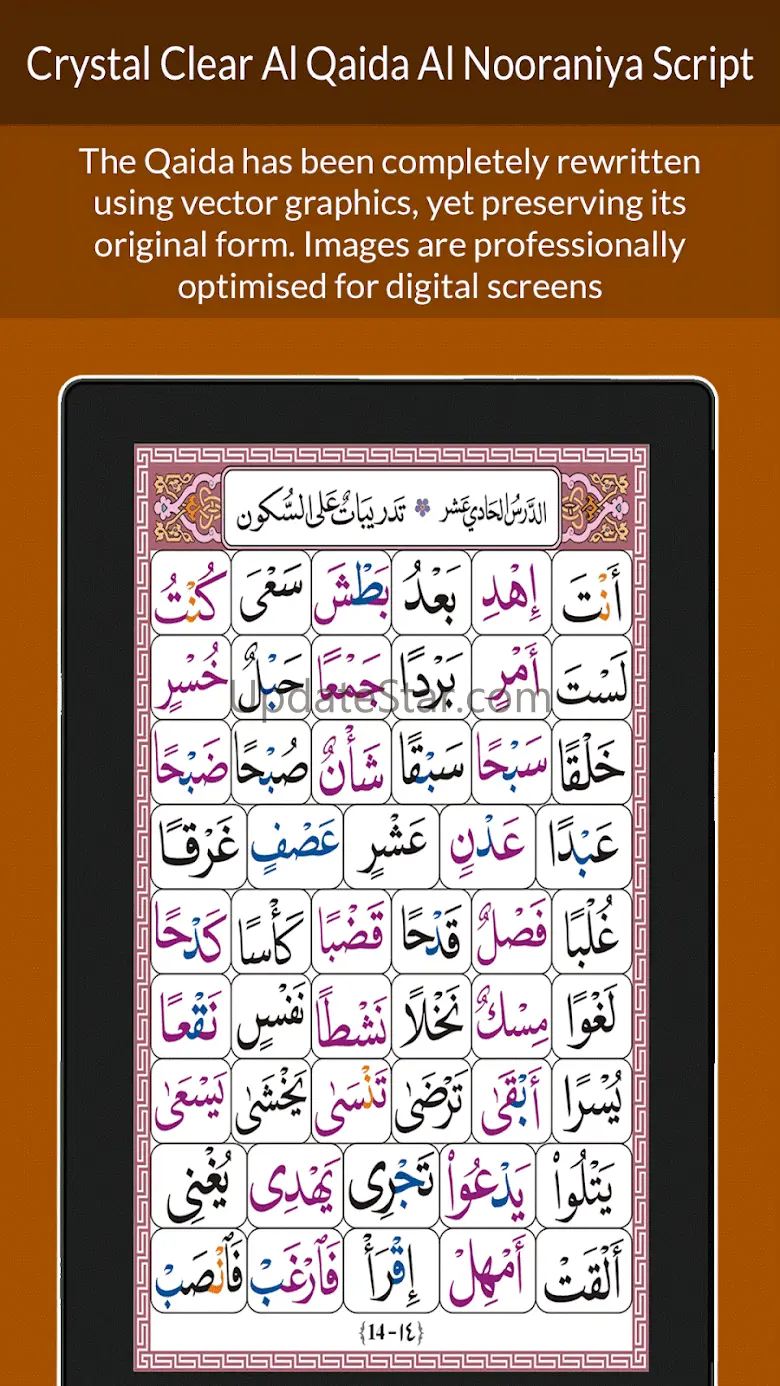 Crystal Clear Al Qaida Al Nooraniya Script
The Qaida has been completely rewritten
using vector graphics, yet preserving its
original form. Images are professionally
optimised for digital screens
الدَّرْسُ الحَادِي عَشَر تَدرِيبَاتٌ عَلَى السُّكُون
أَنْتَ إِهْدِ بَعْدُ بَطْشَ سَعْىَ كُنْتُ
لَسْتَ أَمْرٍ بَرْدًا جَمْعًا حَبْلٌ خُسْرٍ
UpdateStar.com
خَلْقًا سَبْحًا سَبْقًا شَأْنٌ صُبْحًا ضَبْحًا
عَبْدًا عَدْنٍ عَشْرٍ عَصْفٍ غَرْقًا
غُلْبًا فَصْلٌ قَدْحًا قَضْبًا كَأْسًا كَدْحًا
لَغْوًا مِسْكٌ نَخْلًا نَشْطًا نَفْسٍ نَقْعًا
يُسْرًا أَبْقَى تَرْضَى تَنْسَى يَخْشَى يَسْعَى
يَتْلُواْ يَدْعُواْ تَجْرِى يَهْدِى يُغْنِى
أَلْقَتْ أَمْهِلْ إِقْرَأْ فَٱرْغَبْ فَٱنْصَبْ
{14-١٤}